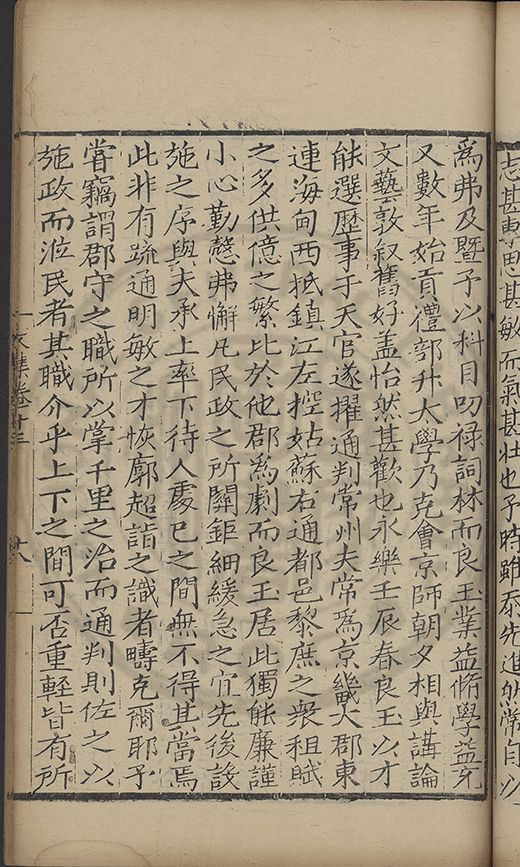 志甚專思甚敏而氣甚壯也予時雖忝先進然常自以
為弗及暨予以科目叨禄詞林而良玉業益脩學益充
又數年始貢禮部升大學乃克會京師朝夕相與講論
文藝敦叙舊好盖怡然甚歡也永樂壬辰春良玉以才
能選歷事于天官遂擢通判常州夫常為京畿大郡東
連海甸西抵鎮江左控姑蘇右通都邑黎庶之衆租賦
之多供億之繁比於他郡為劇而良玉居此獨能廉謹
小心勤慤弗懈凡民政之所關鉅細緩急之宜先後設
施之序與夫承上率下待人處已之間無不得其當焉
此非有疏通明敏之才恢廓超詣之識者疇克爾耶予
嘗竊謂郡守之職所以掌千里之治而通判則佐之以
施政而涖民者其職介乎上下之間可否重輕皆有所
文集卷十三
廿八